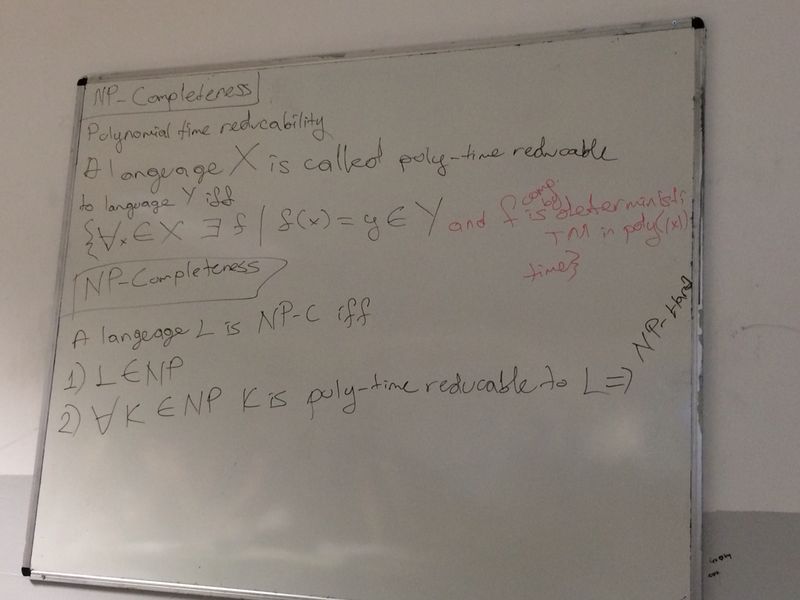 NP-Completeness
Polynomial time reducability
A language X is called poly-time reducable
to language Y iff
{∀x ∈ X ∃ f | f(x) = y ∈ Y and f is comp. by deterministi
TM in poly(|x|)
time}
NP-Completeness
A langeage L is NP-C iff
1) L ∈ NP
2) ∀K ∈ NP K is poly-time reducable to L => NP-Hard